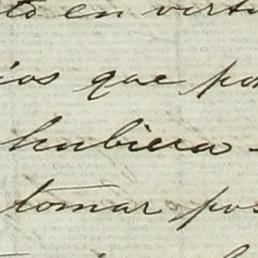 en virtu
que po
hubiera
tomar pos